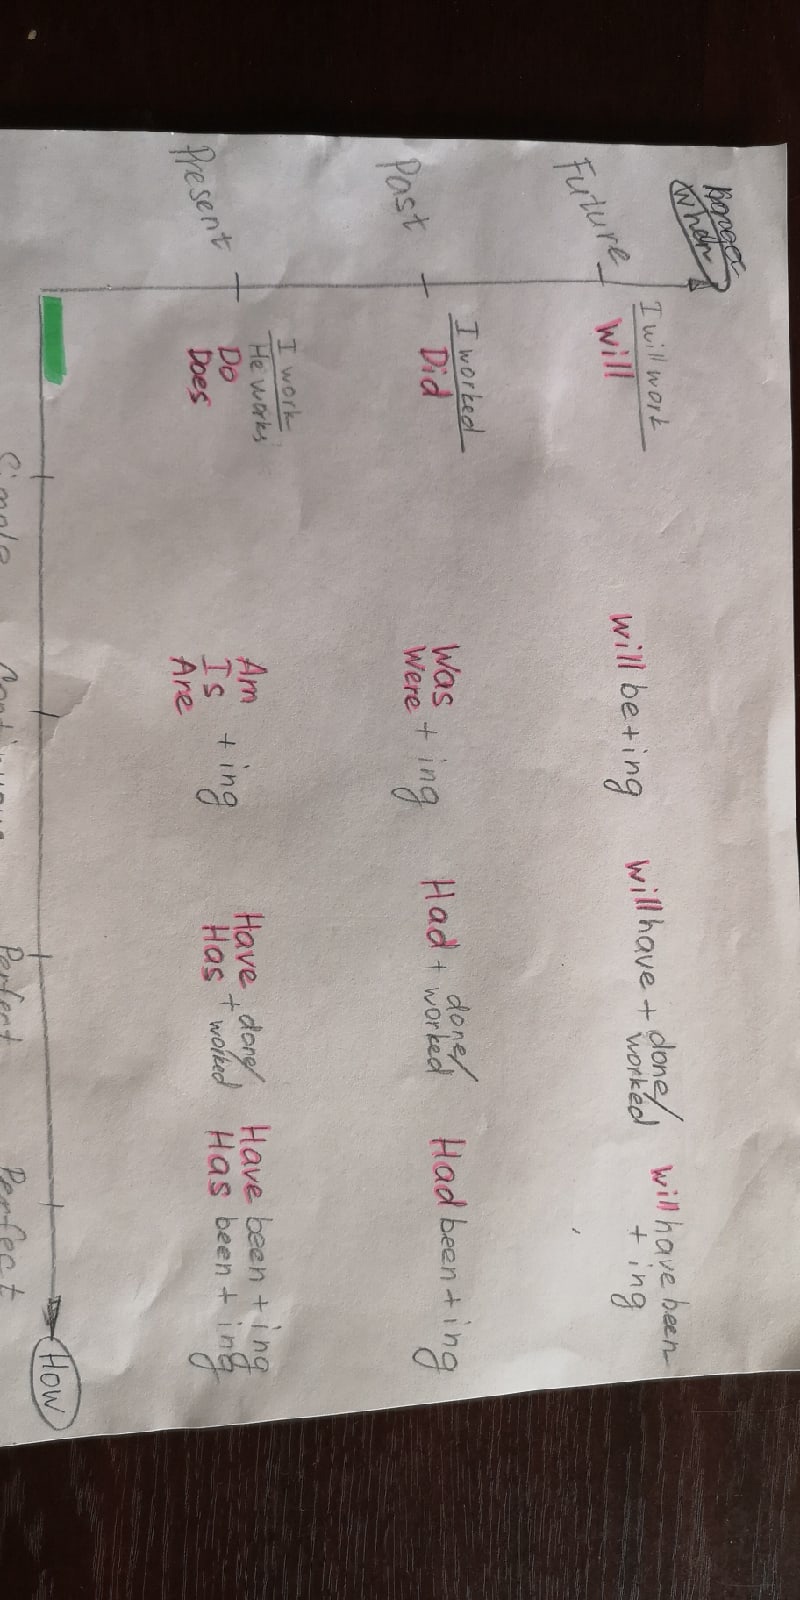 When
I will work
will
Future
will be + ing
will have + done/
worked
will have been
+ ing
I worked
Did
Past
Was
Were + ing
Had + done/
worked
Had been + ing
I work
He works
Do
Does
Present
Am
Is
Are
+ ing
Have
Has
+ done/
worked
Have been + ing
Has been + ing
HOW
Simple Continuous Perfect Perfect